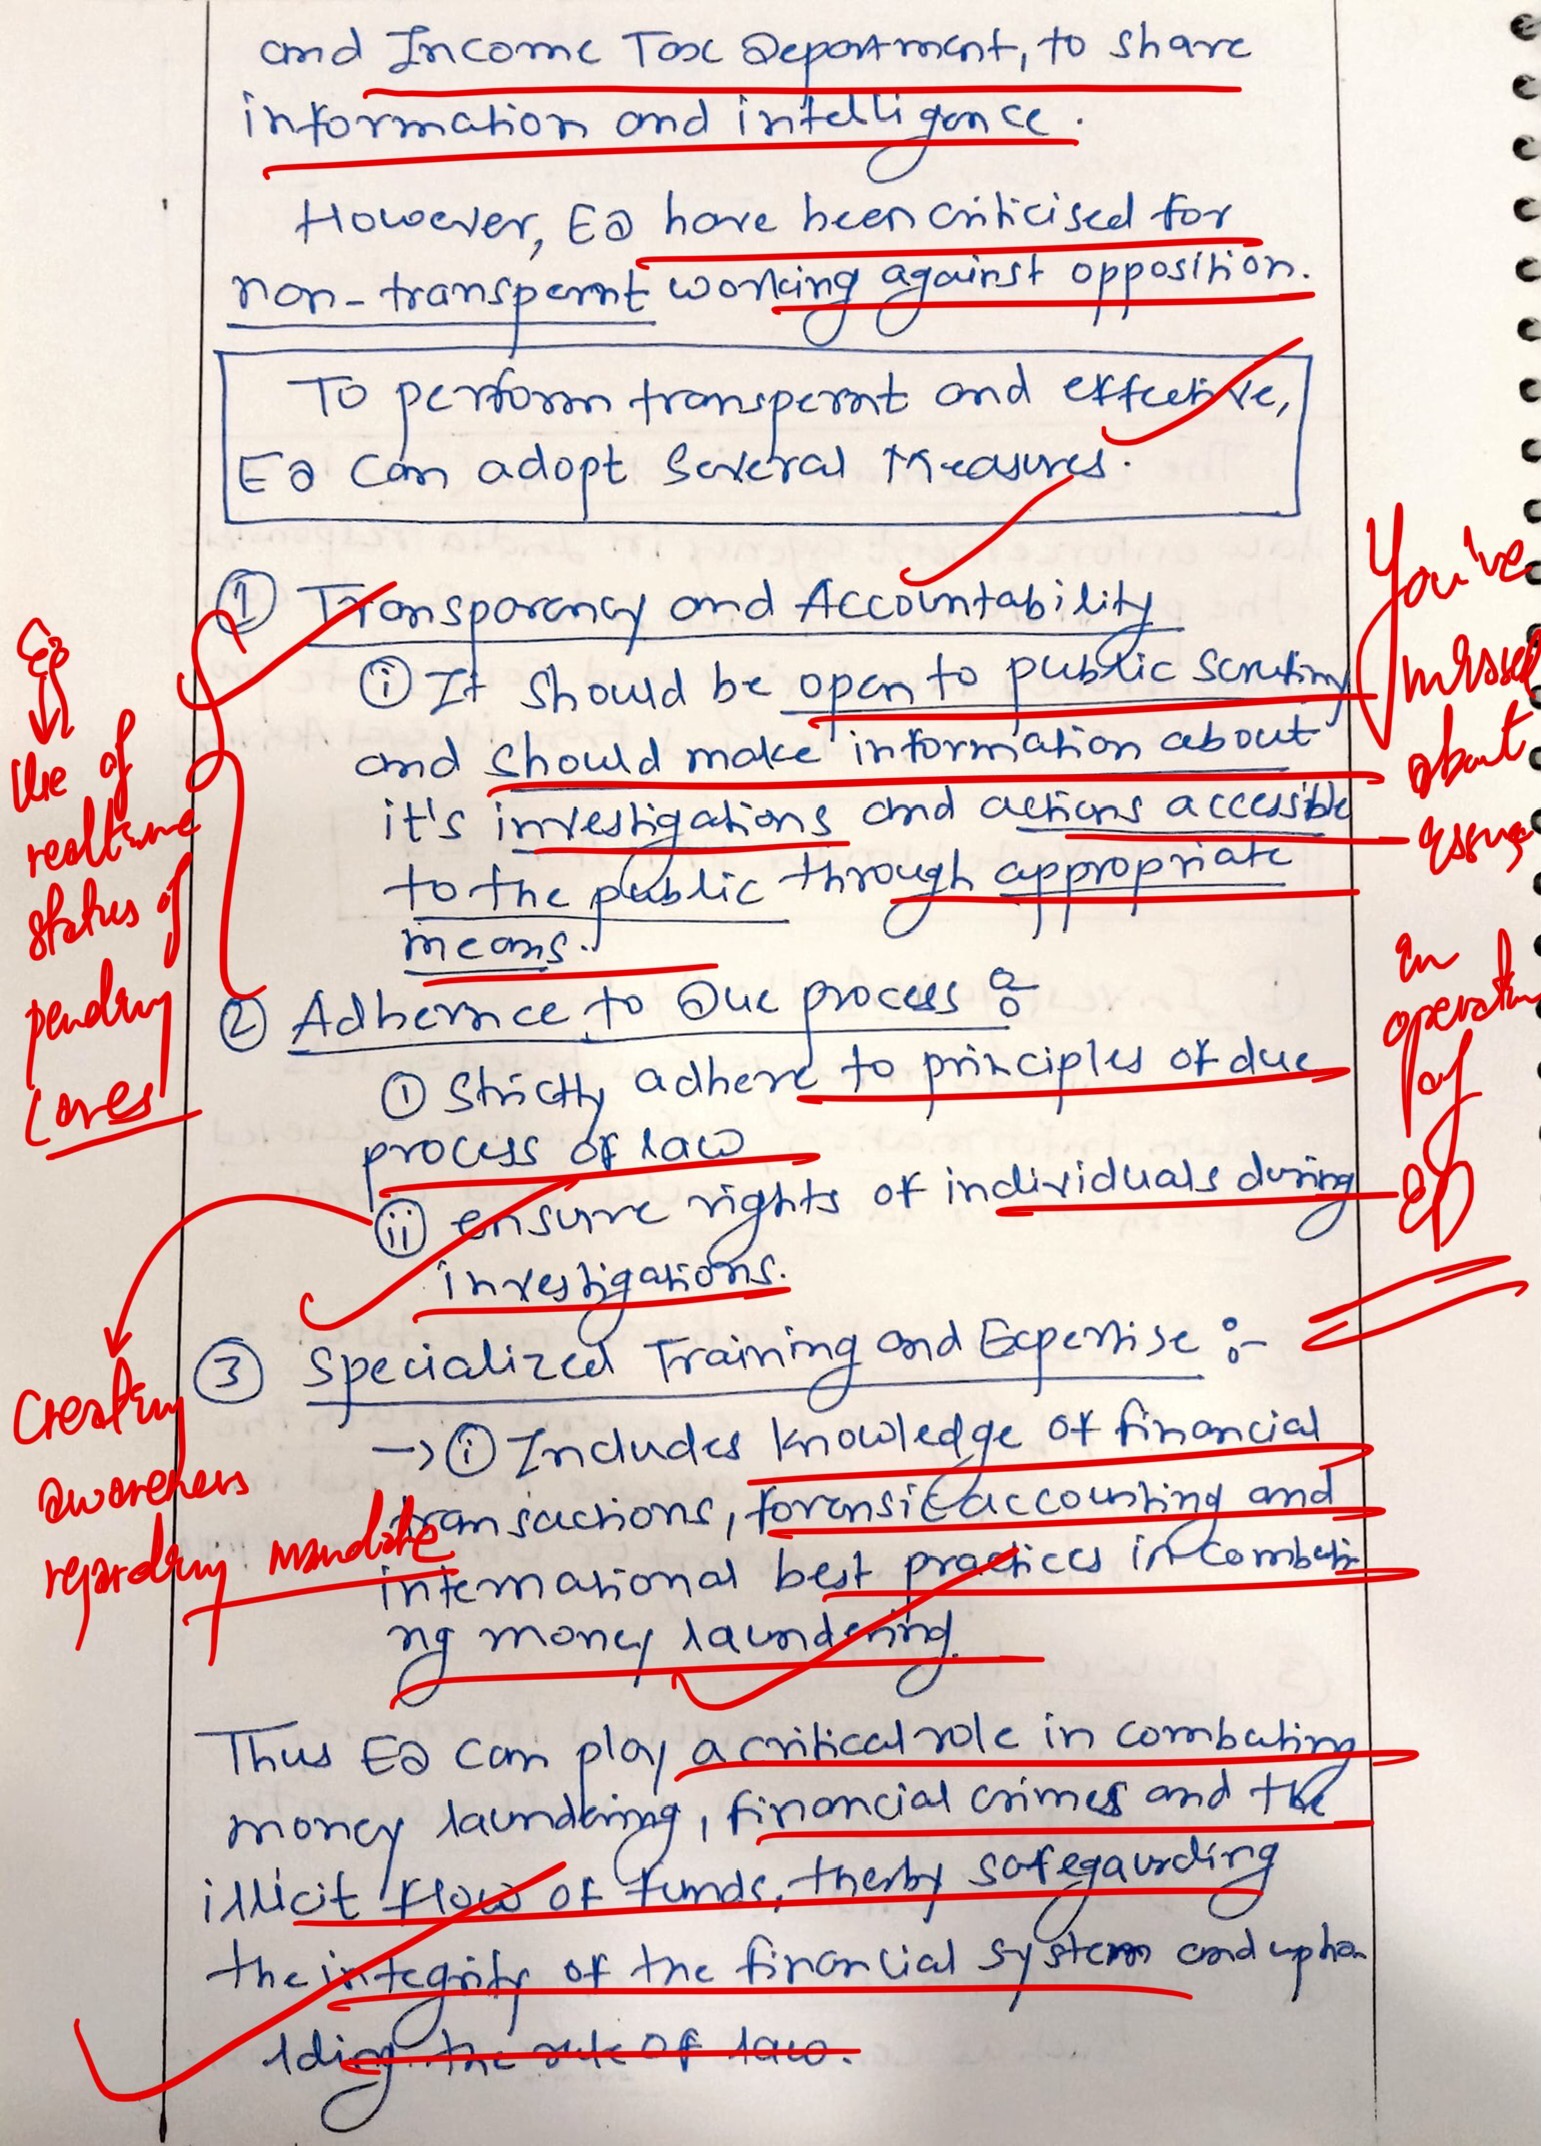 and Income Tax Department, to share
information and intelligence.
However, ED have been criticised for
non-transpernt working against opposition.
To perform transpernt and effective,
ED can adopt several Measures.
① Transparency and Accountability
ⓘ It should be open to public scrutiny
and should make information about
it's investigations and actions accessible
to the public through appropriate
means.
② Adhernce to Due process :-
ⓘ Strictly adhere to principles of due
process of law
ⓘⓘ ensure rights of individuals during
investigations.
③ Specialized Training and Expertise :-
→ ⓘ Includes knowledge of financial
transactions, forensic accounting and
international best practices in combati-
ng money laundering.
Thus ED can play a critical role in combating
money laundering, financial crimes and the
illicit flow of funds, therby safegaurding
the integrity of the financial system and upho
lding the rule of law.
Eg
Use of
realtime
status of
pending
cases
Creating
awareness
regarding mandate
You've
missed
about
issues
in
operating
of
ED